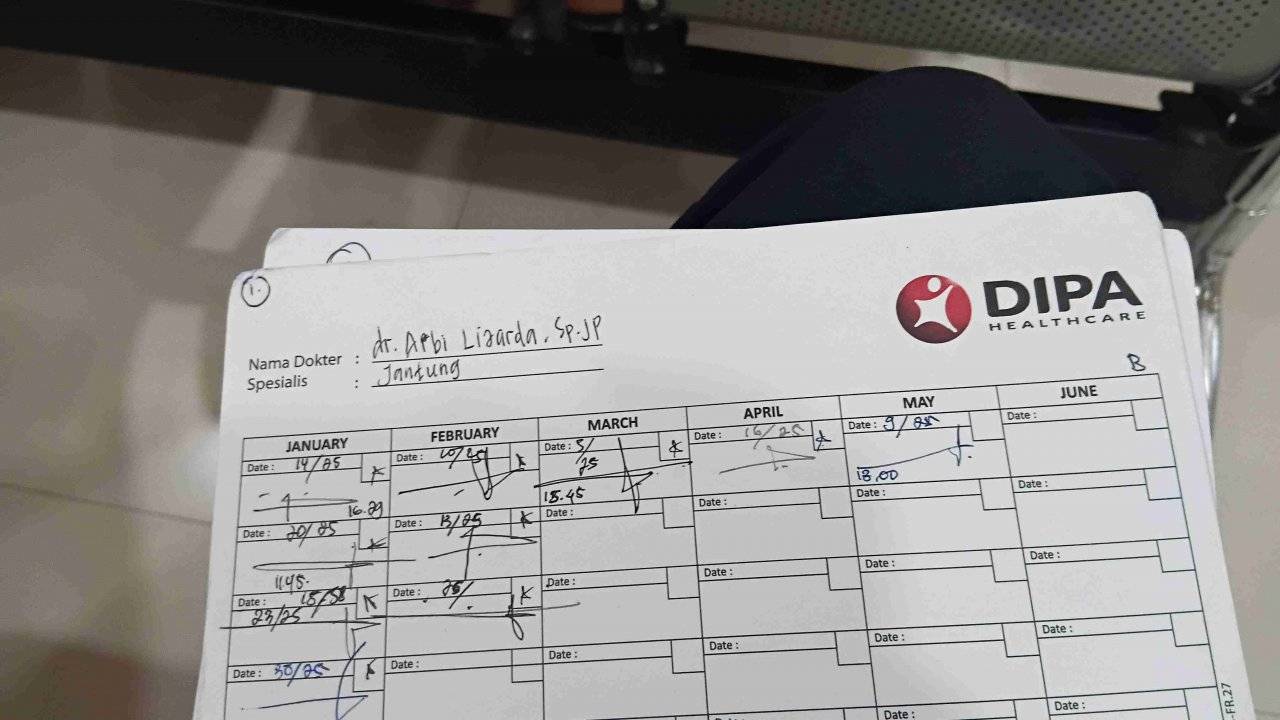 1.
DIPA
HEALTHCARE
Nama Dokter : dr. Arbi Lizarda, Sp.JP
Spesialis : Jantung
B
JANUARY FEBRUARY MARCH APRIL MAY JUNE
Date : 14/25 Date : 10/25 Date : 5/25 Date : 16/25 Date : 9/25 Date :
16.29 18.45 18.00
Date : 20/25 Date : 13/25 Date : Date : Date : Date :
1145.
Date : 18/58 Date : Date : Date : Date : Date :
23/25
Date : 30/25 Date : Date : Date : Date : Date :
Date : Date :
FR.27